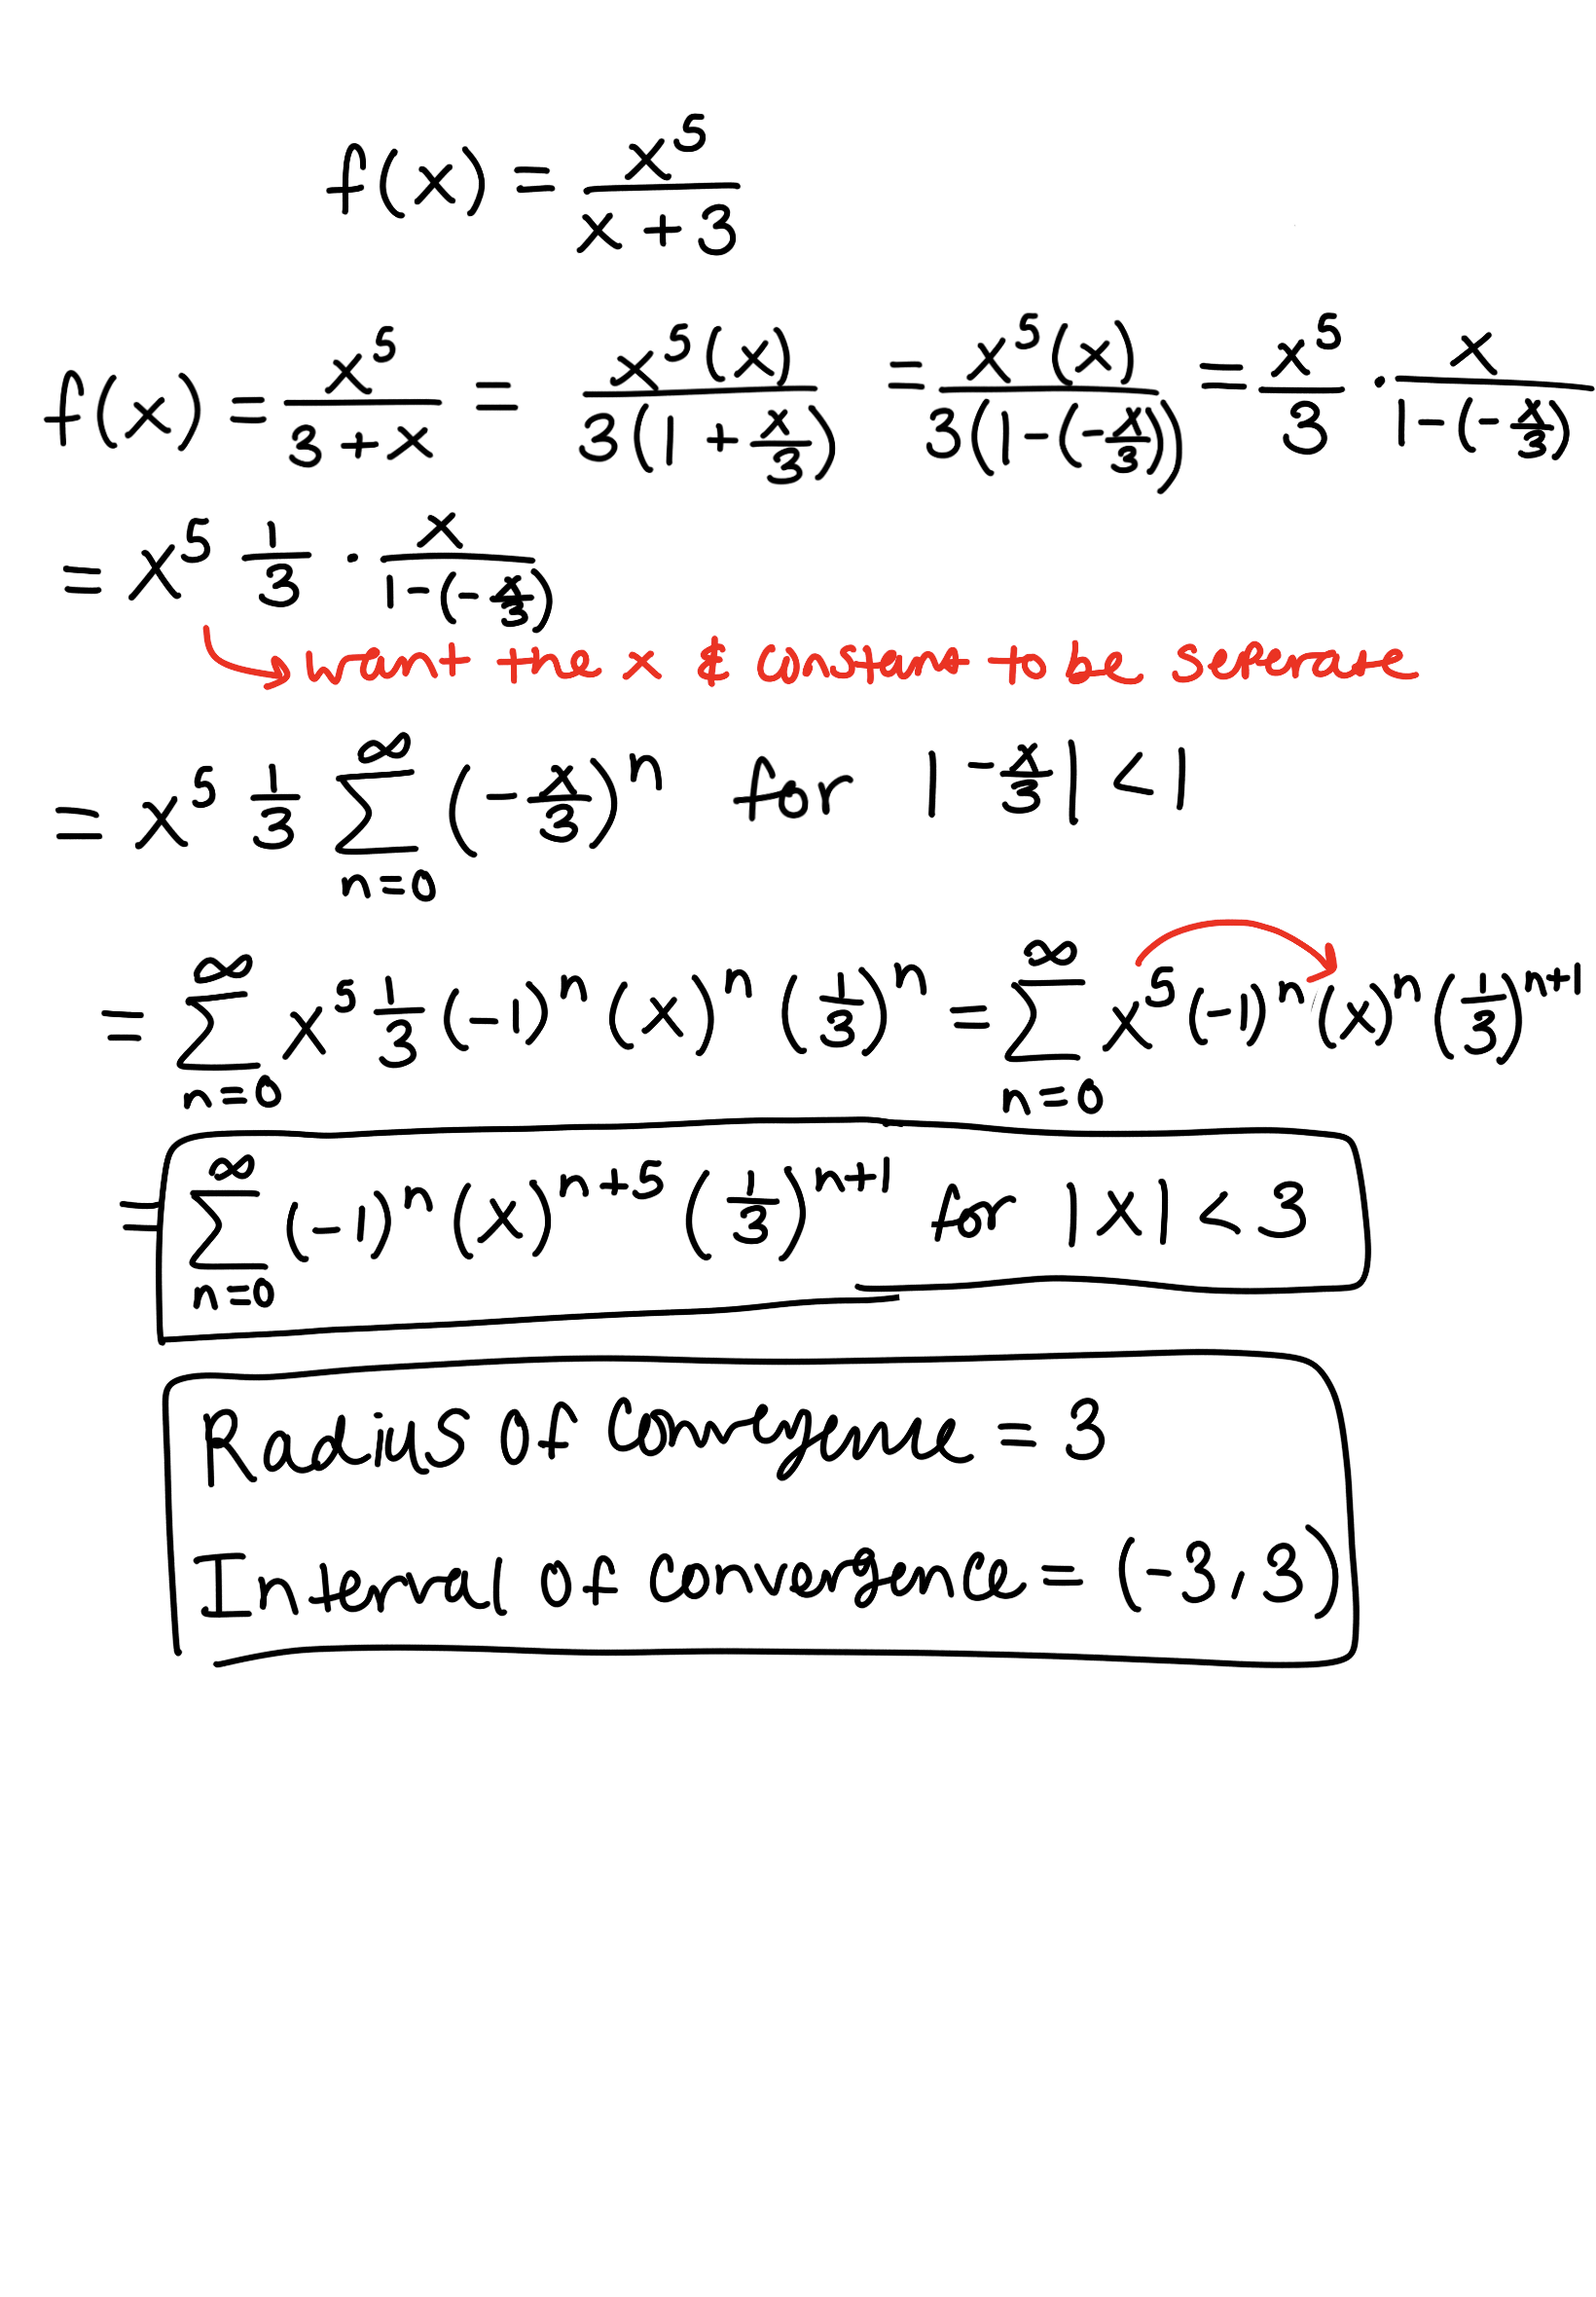 f(x) = x⁵/(x + 3)
f(x) = x⁵/(3 + x) = x⁵(x)/(3(1 + x/3)) = x⁵(x)/(3(1-(-x/3))) = x⁵/3 · x/(1-(-x/3))
= x⁵ 1/3 · x/(1-(-x/3))
want the x & constant to be seperate
= x⁵ 1/3 ∑_{n=0}^{∞} (-x/3)ⁿ for |-x/3| < 1
= ∑_{n=0}^{∞} x⁵ 1/3 (-1)ⁿ (x)ⁿ (1/3)ⁿ = ∑_{n=0}^{∞} x⁵ (-1)ⁿ (x)ⁿ (1/3)ⁿ⁺¹
= ∑_{n=0}^{∞} (-1)ⁿ (x)ⁿ⁺⁵ (1/3)ⁿ⁺¹ for |x| < 3
Radius of Convergence = 3
Interval of Convergence = (-3, 3)